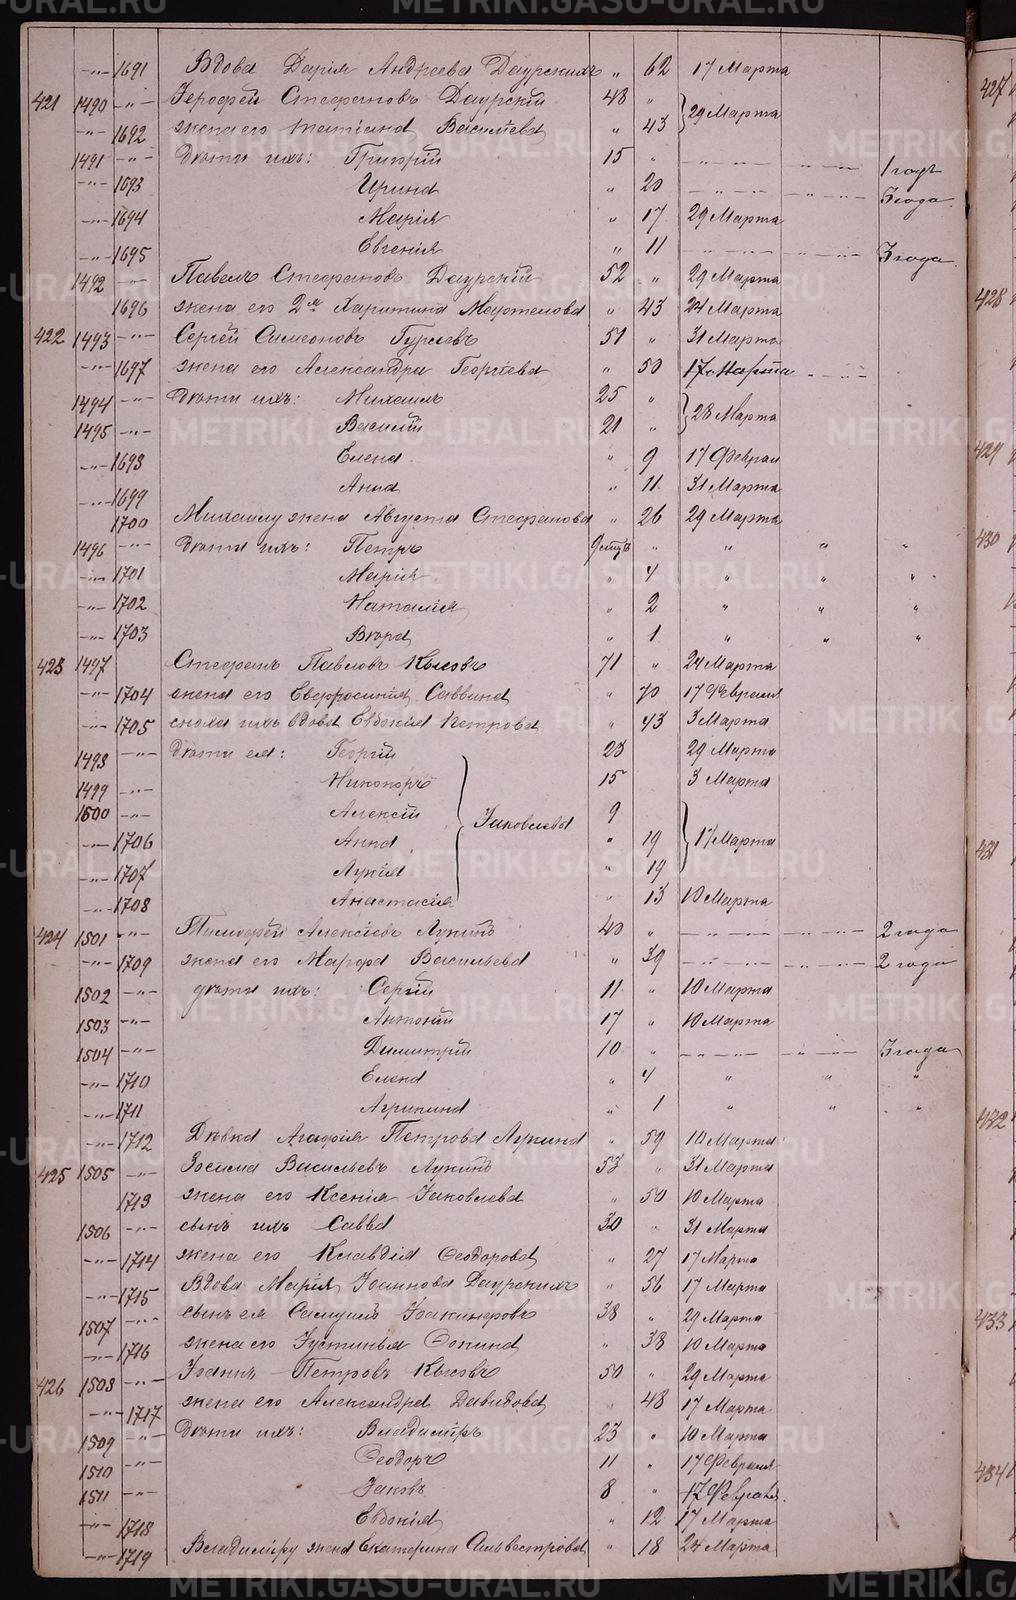 -"- 1691 Вдова Дарія Андреева Даурскихъ " 62 17 Марта
421 1490 -"- Іерофей Стефановъ Даурскій 48 " 29 Марта
-"- 1692 жена его Татіана Васильева " 43
1491 -"- Дѣти ихъ: Григорій 15 " -"-"- "-"- 1 годъ
-"- 1693 Ирина " 20 -"-"- "-"- 3 года
-"- 1694 Марія " 17 29 Марта
-"- 1695 Евгенія " 11 -"-"- "-"- 3 года
1492 -"- Павелъ Стефановъ Даурскій 52 " 29 Марта
1696 жена его 2я Харитина " 43 24 Марта
422 1493 -"- Сергѣй Симеоновъ Гурьевъ 51 " 31 Марта
-"- 1697 жена его Александра Георгіева " 50 17 Марта
1494 -"- Дѣти ихъ: Михаилъ 25 " 28 Марта
1495 -"- Василій 21 "
-"- 1698 Елена " 9 17 Феврал
-"- 1699 Анна " 11 31 Марта
1700 Михаилу жена Августа Стефанова " 26 29 Марта
1496 -"- Дѣти ихъ: Петръ " " " "
-"- 1701 Марія " 4 " " "
-"- 1702 Наталія " 2 " " "
-"- 1703 Вѣра " 1 " " "
423 1497 Стефанъ Павловъ 71 " 24 Марта
-"- 1704 жена его Евфросинія Саввина " 70 17 Февраля
-"- 1705 сноха ихъ вдова Евдокія Петрова " 43 3 Марта
1498 -"- Дѣти ея: Георгій 23 29 Марта
1499 -"- Никаноръ 15 3 Марта
1500 -"- Алексій 9 17 Марта
Іаковлева
-"- 1706 Анна " 19
-"- 1707 Лукія " 19
-"- 1708 Анастасія " 13 10 Марта
424 1501 -"- Тимофей Алексіевъ Лукинъ 40 " -"-"- "-"- 2 года
-"- 1709 жена его Марфа Васильева " 39 -"-"- "-"- 2 года
1502 -"- дѣти ихъ: Сергій 11 " 10 Марта
1503 -"- Антоній 17 " 10 Марта
1504 -"- Димитрій 10 " -"-"- "-"- 3 года
-"- 1710 Елена " 4 " " "
-"- 1711 Агрипина " 1 " " "
-"- 1712 Дѣвка Агафія Петрова Лукина " 59 10 Марта
425 1505 -"- Зосима Васильевъ Лукинъ 53 " 31 Марта
1713 жена его Ксенія Іаковлева " 50 10 Марта
1506 -"- сынъ ихъ Савва 30 " 31 Марта
-"- 1714 жена его Клавдія Ѳеодорова " 27 17 Марта
-"- 1715 Вдова Марія Іоаннова Даурскихъ " 56 17 Марта
1507 -"- сынъ ея Самуилъ 38 " 29 Марта
-"- 1716 жена его Іустинья Ѳомина " 38 10 Марта
426 1508 -"- Іоаннъ Петровъ 50 " 29 Марта
-"- 1717 жена его Александра Давидова " 48 17 Марта
1509 -"- Дѣти ихъ: Владиміръ 23 " 10 Марта
1510 -"- Ѳеодоръ 11 " 17 Февраля
1511 -"- Іаковъ 8 " 17 Февраля
-"- 1718 Евдокія " 12 17 Марта
-"- 1719 Владиміру жена Екатерина Сильвестрова " 18 24 Марта
427
428
429
430
431
432
433
434
METRIKI.GASO-URAL.RU